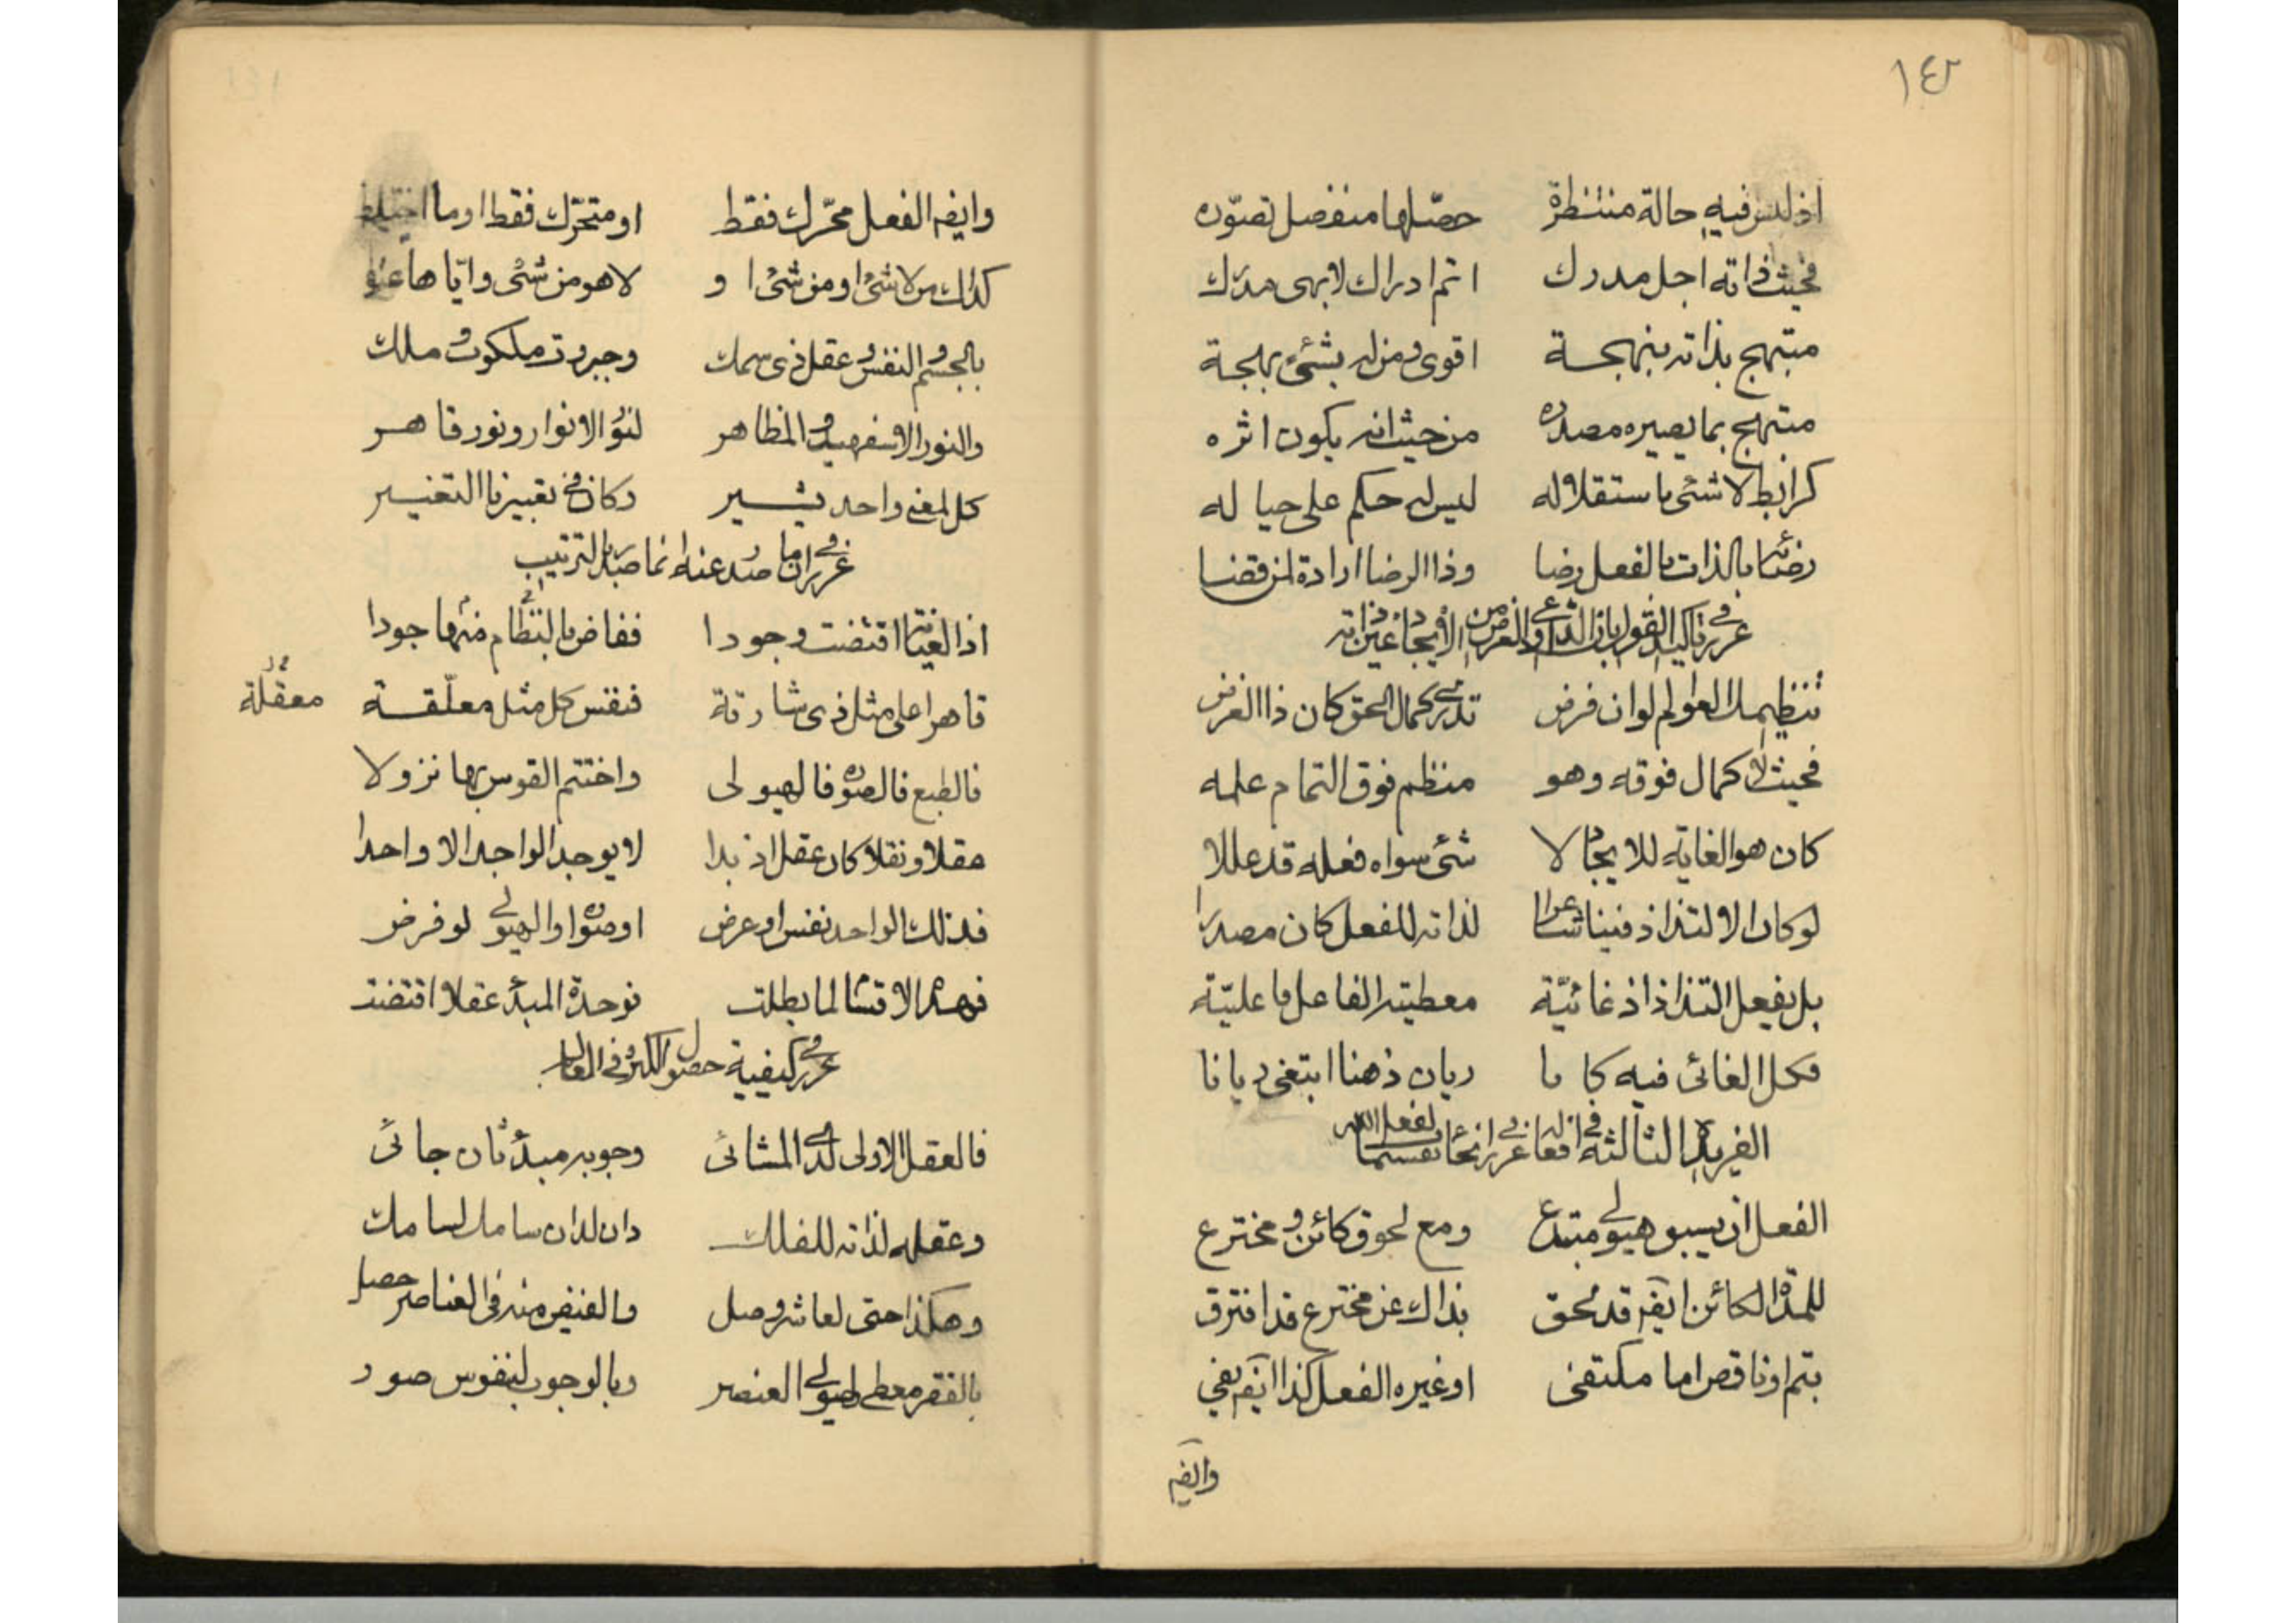 ١٤٠
اذ ليس فيه حالة منتظرة حصّلها منفصل تصوّره
فحيث ذاته اجل مدرك اتم ادراك لابهى مدرك
مبتهج بذاته بنهجة اقوى ومن له بشئ بهجة
مبتهج بما يصير مصدره من حيث انه يكون اثره
كرابط لا شئ باستقلاله ليس له حكم على حياله
رضائه بالذات بالفعل رضا وذا الرضا ارادة لمن قضا
غرر في تاكيد القول بان الداعى والغرض من الايجاد عين ذاته
تنظيمك العوالم لو ان فرض تدرى كمال الحق كان ذا الغرض
فحيث لا كمال فوقه وهو منظم فوق التمام علمه
كان هو الغاية للايجاد لا شئ سواه فعله قد عللا
لو كان الالتذاذ فينا شاعرا لذاته للفعل كان مصدرا
بل بفعل التذاذ اذ غائيّة معطيته الفاعل فاعليّة
فكل الغائى فيه كا ما ريان ذهنا ابتغى ريانا
الفريدة الثالثة في افعاله غرر في انحاء تقسيمات لفعل الله
الفعل ان يسبق هيولى مبتدع ومع لحوق كائن ومخترع
للمدة الكائن ايضا قد لحق بذاك عن مخترع قد افترق
بتم او ناقص اما مكتفى او غيره الفعل كذا ايضا يفى
وايض
وايضا الفعل محرّك فقط او متحرّك فقط او ما اختلط
كذلك من لا شئ او من شئ او لا هو من شئ واياها عنوا
بالجسم والنفس وعقل ذى سمك وجبروت ملكوت وملك
والنور الاسفهبد والمظاهر لنور الانوار ونور قاهر
كل لمعنى واحد يشير وكان في تعبيرنا التغيير
غرر في ان ما صدر عنه انما صدر بالترتيب
اذ العناية اقتضت وجودا ففاض بالنظام منها جودا
قاهرا على مثل ذى شارقة فنفس كل مثل معلّقة
معقلة
فالطبع فالصورة فالهيولى واختتم القوس بها نزولا
عقلا ونقلا كان عقل اذ بدا لا يوجد الواحد الا واحدا
فذلك الواحد نفس او عرض او صورة او الهيولى لو فرض
فهذه الاقسام لما بطلت فوحدة المبدء عقلا اقتضت
غرر في كيفية حصول الكثرة في العالم
فالعقل الاولى لدى المشائى وجوبه مبدء ثان جائى
وعقله لذاته للفلك دان لدان سامك لسامك
وهكذا حتى لعاشر وصل والفيض منه في العناصر حصل
بالفقر معطى هيولى العنصر وبالوجوب لنفوس صور